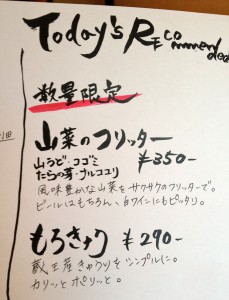 Today's RECommended
数量限定
山菜のフリッター
山うど・コゴミ
たらの芽・ナルコユリ
¥350-
風味豊かな山菜をサクサクのフリッターで。
ビールはもちろん、白ワインにもピッタリ。
もろきゅう ¥290-
蔵王産きゅうりをシンプルに。
カリッとポリッと。